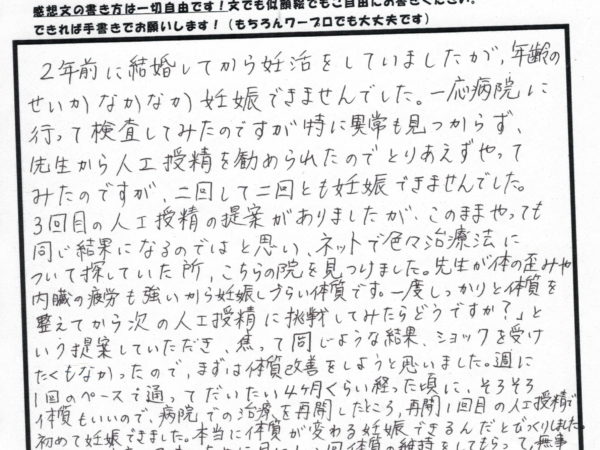 感想文の書き方は一切自由です！文でも似顔絵でもご自由にお書きください。
できれば手書きでお願いします！（もちろんワープロでも大丈夫です）
2年前に結婚してから妊活をしていましたが、年齢の
せいかなかなか妊娠できませんでした。一応病院に
行って検査してみたのですが特に異常も見つからず、
先生から人工授精を勧められたのでとりあえずやって
みたのですが、二回して二回とも妊娠できませんでした。
3回目の人工授精の提案がありましたが、このままやっても
同じ結果になるのではと思い、ネットで色々治療法に
ついて探していた所、こちらの院を見つけました。先生が体の歪みや
内臓の疲労も強いから妊娠しづらい体質です。一度しっかりと体質を
整えてから次の人工授精に挑戦してみたらどうですか？」と
いう提案していただき、焦って同じような結果、ショックを受け
たくもなかったので、まずは体質改善をしようと思いました。週に
1回のペースで通ってだいたい4ヶ月くらい経った頃に、そろそろ
体質もいいので、病院での治療を再開したところ、再開1回目の人工授精で
初めて妊娠できました。本当に体質が変わる妊娠できるんだとびっくりしました。
回体質の維持をしてもらって、無事